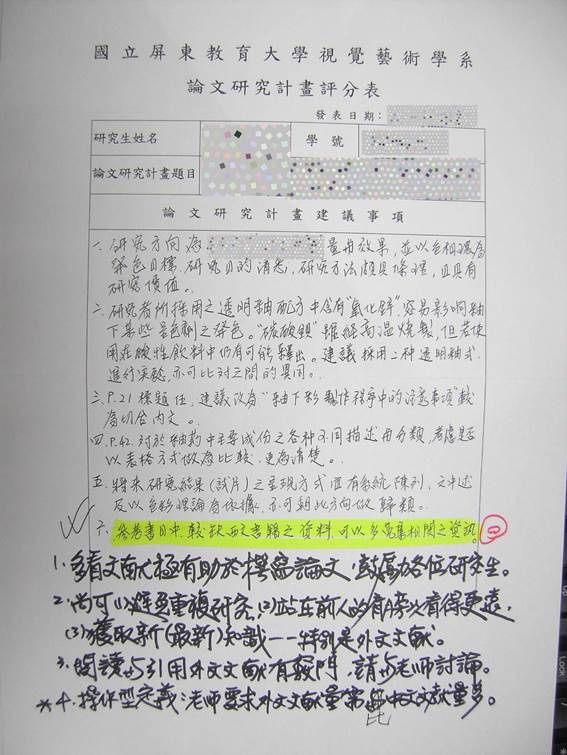 國立屏東教育大學視覺藝術學系
論文研究計畫評分表
發表日期：
研究生姓名
學號
論文研究計畫題目
論文研究計畫建議事項
一、研究方向為 量用效果，並以色相環為
發色目標，研究目的清晰，研究方法頗具條理，且具有
研究價值。
二、研究者所採用之透明釉配方中含有"氧化鋅"，容易影响釉
下某些呈色劑之發色。"碳酸鋇"雖經高溫燒製，但若使
用在酸性飲料中仍有可能釋出。建議採用二種透明釉式，
進行實驗，亦可比对之間的異同。
三、P.21標題伍，建議改為"釉下彩製作程序中的注意事項"較
為切合內文。
四、P.42.对於釉葯中主要成份之各種不同描述用分類，考慮是否
以表格方式做為比較，更為清楚。
五、將來研究結果(試片)之呈現方式宜有系統陳列，文中述
及以色彩理論為依據，亦可朝此方向做歸類。
六、參考書目中，較缺西文書籍之資料，可以多蒐集相関之資訊。
1.多看文献極有助於撰寫論文，鼓勵各位研究生。
2.尚可(1)避免重複研究，(2)站在前人的肩膀看得更遠，
(3)獲取新(最新)知識——特別是外文文献。
3.閱讀与引用外文文献有竅門，請与老師討論。
*4.操作型定義：老師要求外文文献量需比中文文献量多。